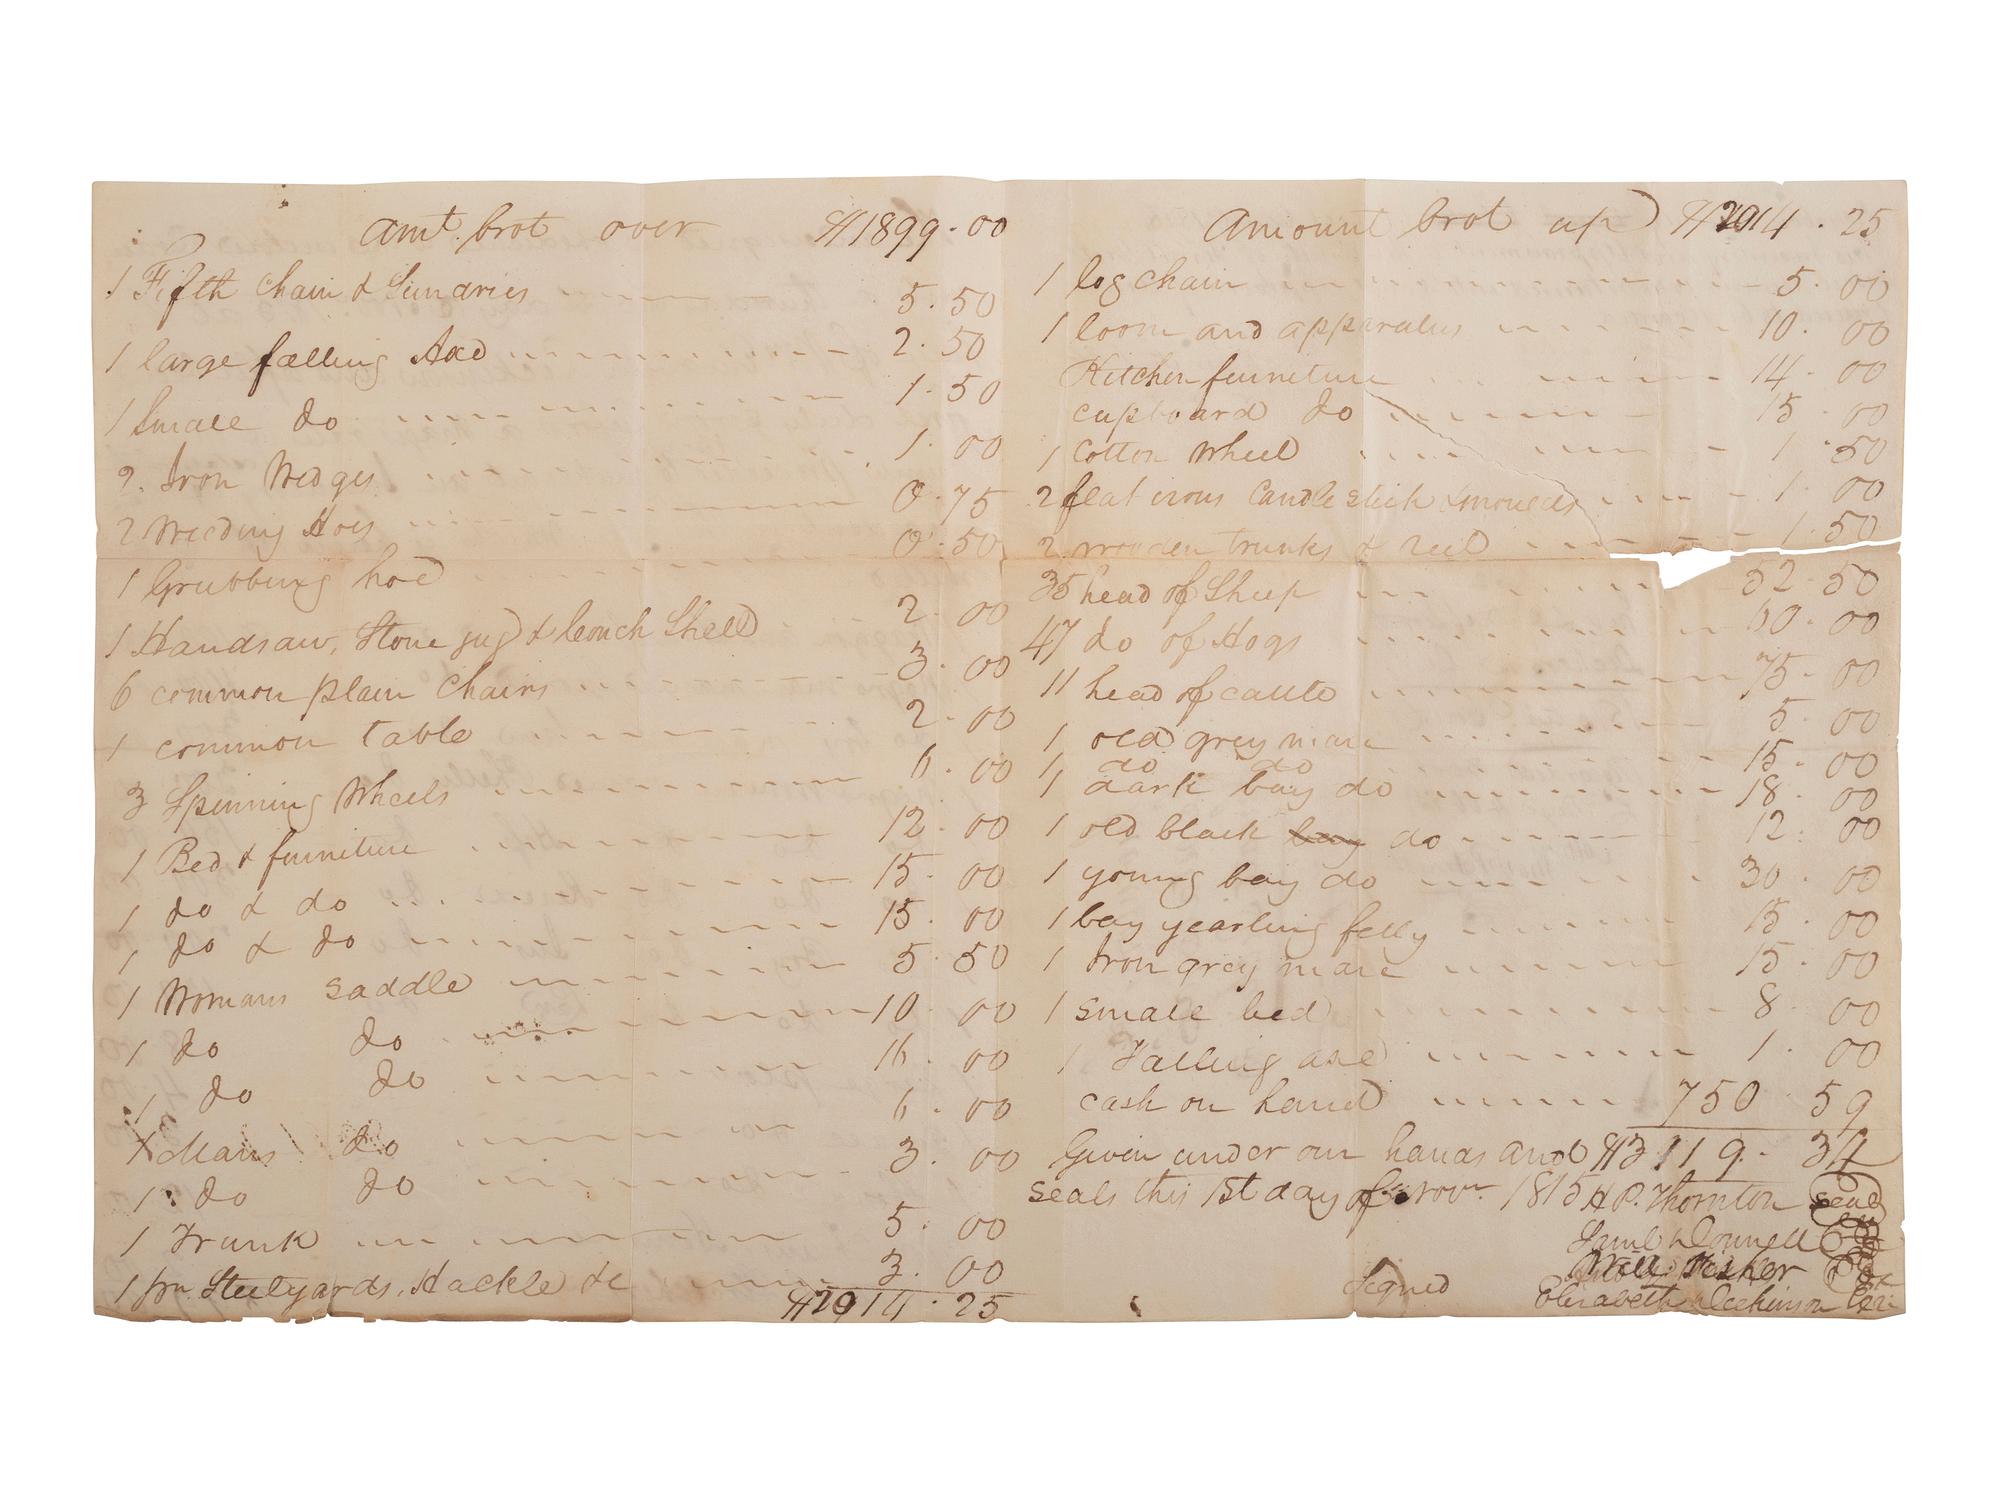 Amt. brot over $1899.00
1 Fifth chain & Sundries 5.50
1 large falling Axe 2.50
1 Small do 1.50
2. Iron Wedges 1.00
2 Weeding Hoes 0.75
1 Grubbing hoe 0.50
1 Handsaw, Stone jug & Conch Shell 2.00
6 common plain chairs 3.00
1 common table 2.00
3 Spinning Wheels 6.00
1 Bed & furniture 12.00
1 do & do 15.00
1 do & do 15.00
1 Womans saddle 5.50
1 do do 10.00
1 do do 16.00
1 Mans do 6.00
1 do do 3.00
1 Trunk 5.00
1 pr. Steelyards, Hackle &c 3.00
$2014.25
Amount brot up $2014.25
1 log chain 5.00
1 loom and apparatus 10.00
Kitchen furniture 14.00
cupboard do 15.00
1 Cotton Wheel 1.50
2 flat irons Candlestick & 1.00
2 wooden trunks & reel 1.50
35 head of Sheep 52.50
47 do of Hogs 60.00
11 head of cattle 75.00
1 old grey mare 5.00
1 do do 15.00
1 dark bay do 18.00
1 old black bay do 12.00
1 young bay do 30.00
1 bay yearling felly 15.00
1 Iron grey mare 15.00
1 small bed 8.00
1 Falling axe 1.00
cash on hand 750.59
Given under our hands and $3119.34
seals this 1st day of Novr. 1815 H P. Thornton seal
Saml
Will. Fisher
Signed Elizabeth Dickinson